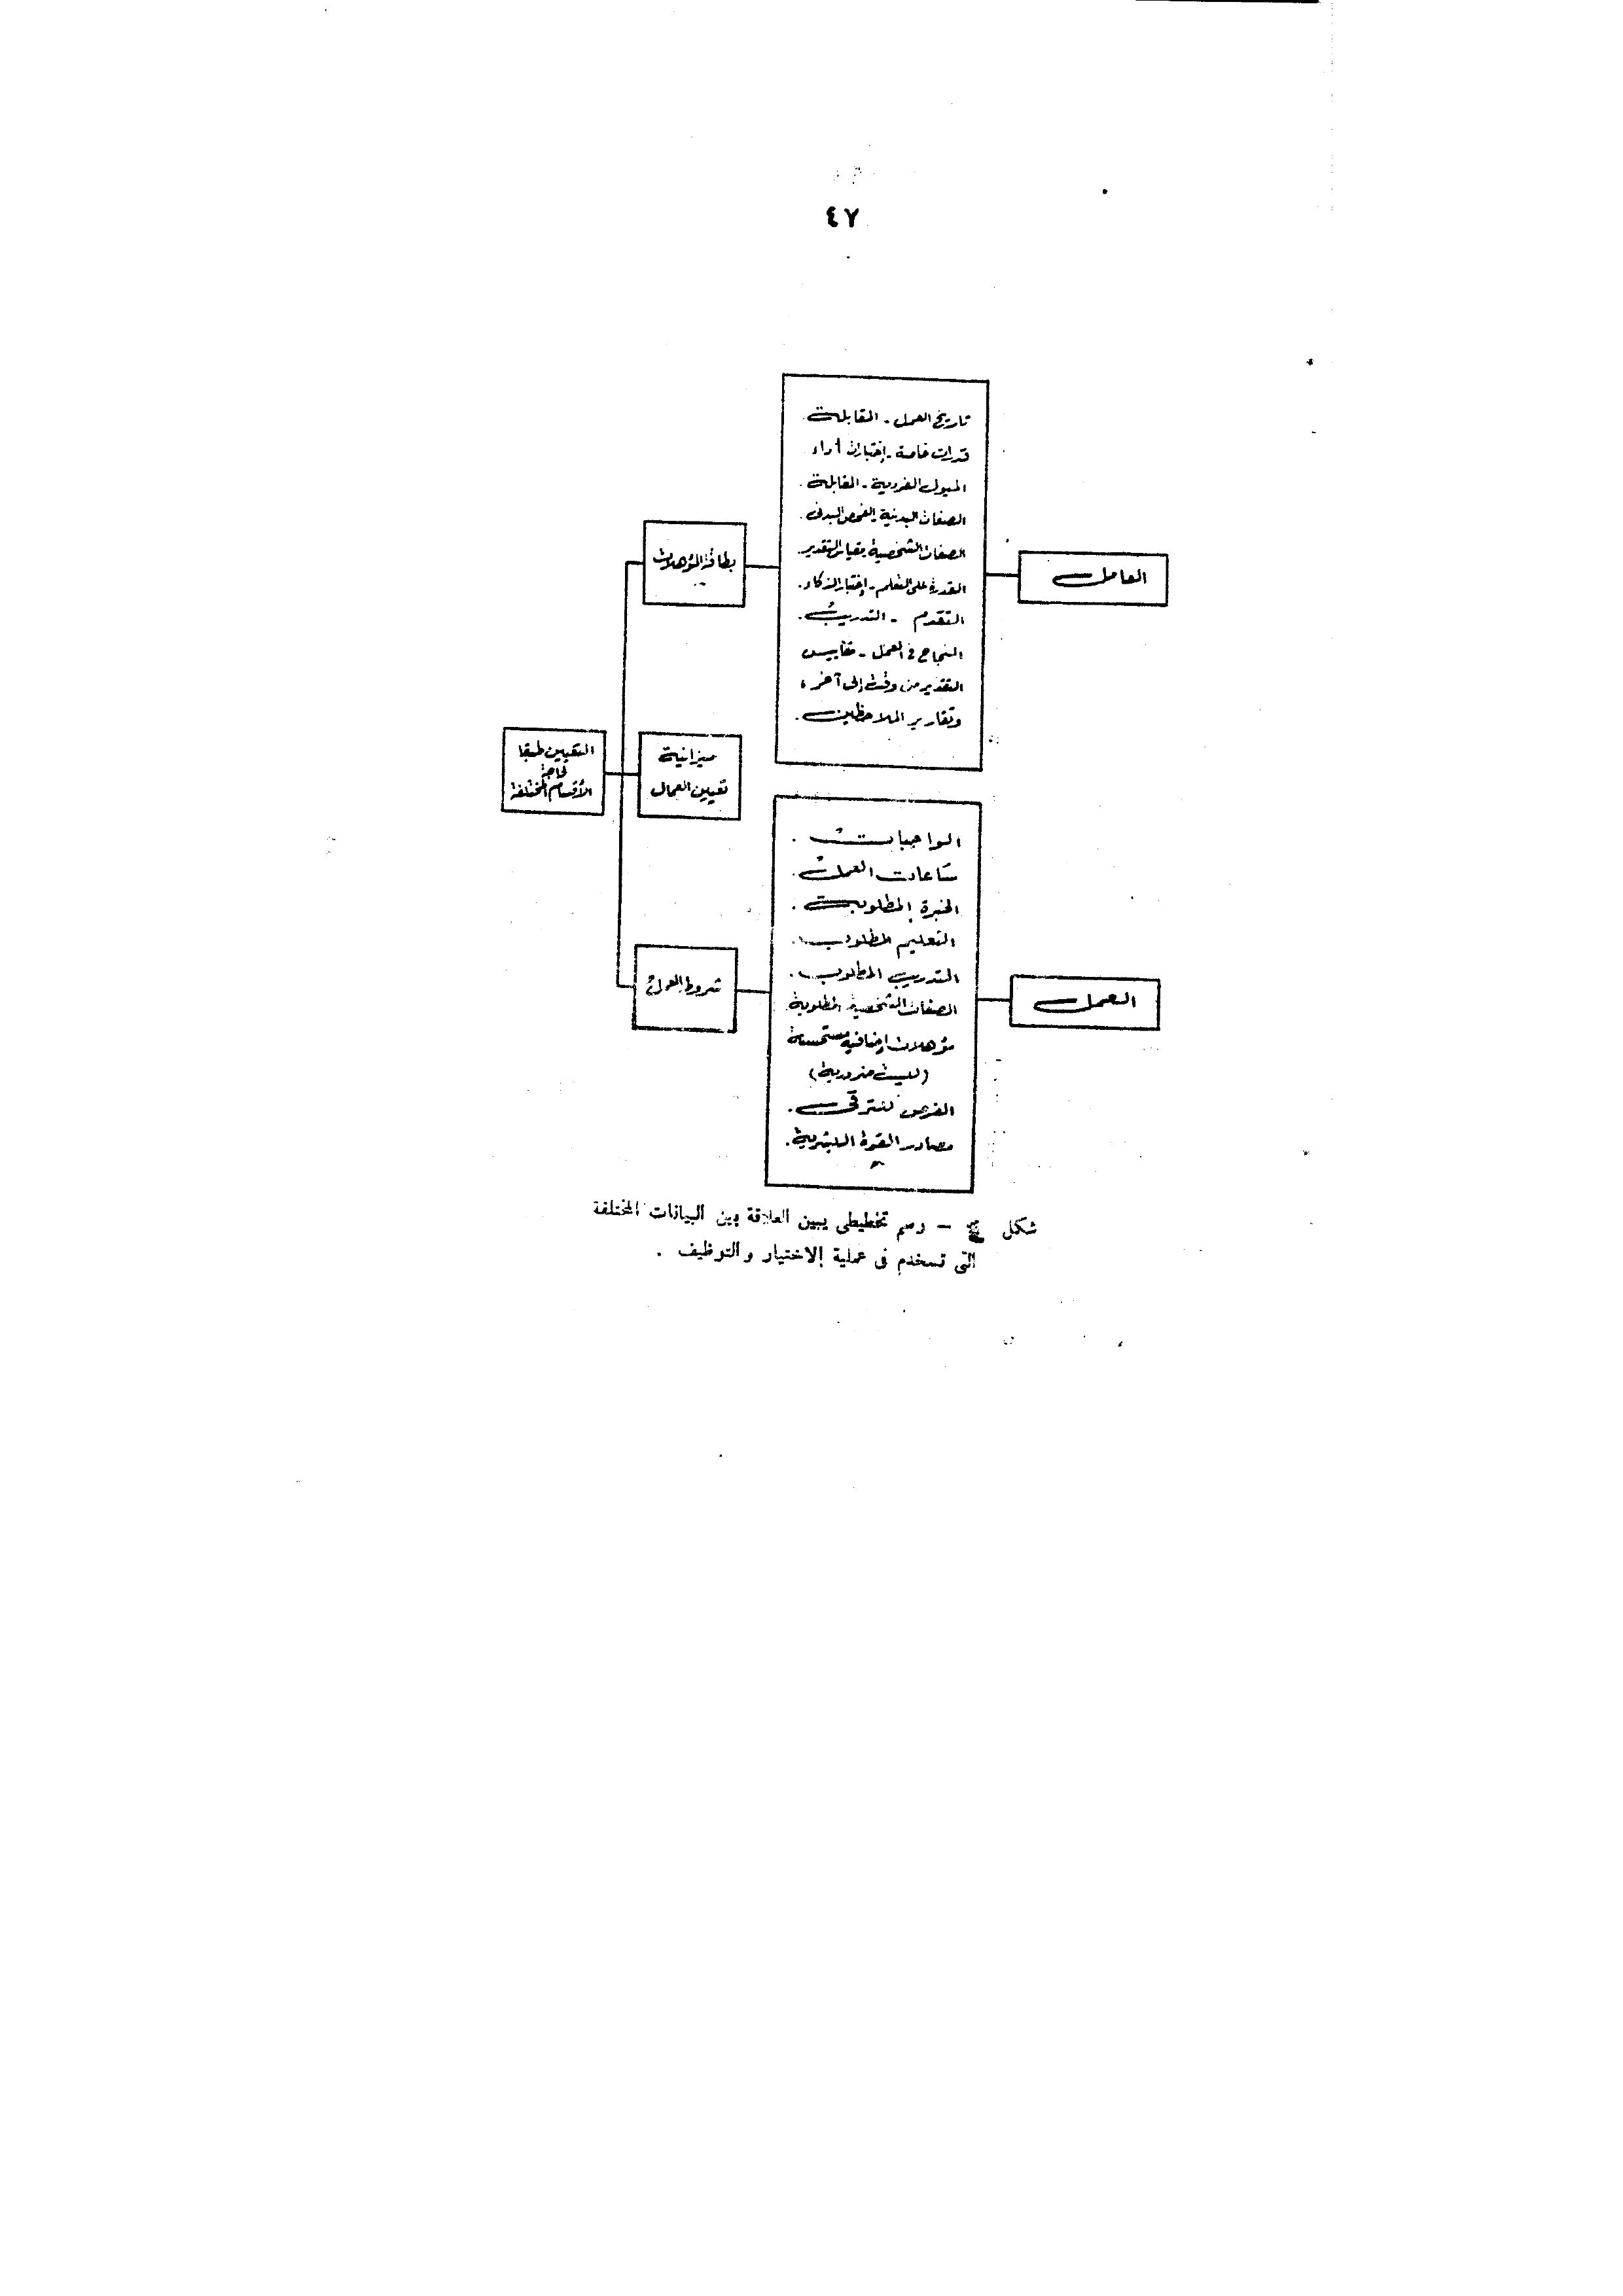 ٤٧
العامل
تاريخ العمل - المقابلة.
قدرات خاصة - إختبارات أداء
الميول الفردية - المقابلة.
الصفات البدنية - الفحص البدنى.
الصفات الشخصية مقياس التقدير.
القدرة على التعلم - إختبار الذكاء.
التقدم - التدريب.
النجاح فى العمل - مقاييس
التقدير من وقت إلى آخر،
وتقارير الملاحظين.
بطاقة المؤهلات
ميزانية
تعيين العمال
التعيين طبقا
لحاجة
الأقسام المختلفة
العمل
الواجبات.
ساعات العمل.
الخبرة المطلوبة.
التعليم المطلوب.
التدريب المطلوب.
الصفات الشخصية المطلوبة.
مؤهلات إضافية مستحسنة
(ليست ضرورية)
الفرص للترقى.
مصادر القوة البشرية.
شروط العمل
شكل – رسم تخطيطى يبين العلاقة بين البيانات المختلفة
التى تسخدم فى عملية الاختيار والتوظيف .